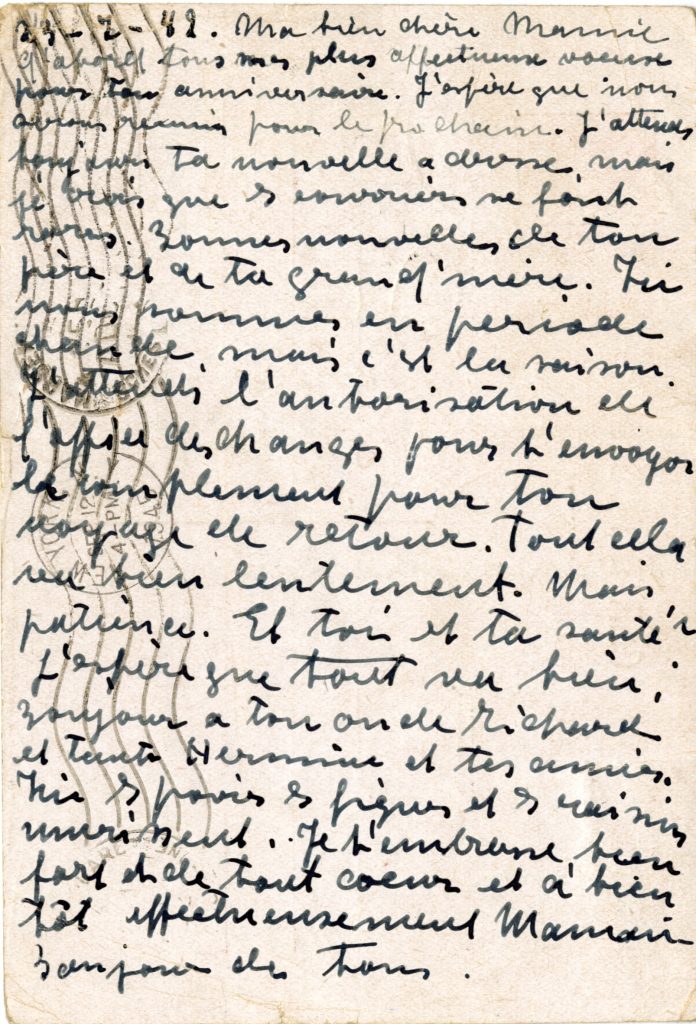 23-7-42. Ma bien chère Mamie
d'abord tous mes plus affectueuse voeuse
pour ton anniversaire. J'espère que nous
serons reunis pour le prochain. J'attends
toujours ta nouvelle adresse, mais
je crois que les courriers se font
rares. Bonnes nouvelles de ton
père et de ta grand'mère. Ici
nous sommes en période
chaude, mais c'est la saison.
J'attends l'autorisation de
l'office des changes pour t'envoyer
le complement pour ton
voyage de retour. Tout cella
va bien lentement. Mais
patience. Et toi et ta santé?
J'espère que tout va bien,
Bonjour a ton oncle Richard
et tante Hermine et tes amies.
Ici les poires les figues et les raisins
murissent. Je t'embrasse bien
fort et de tout coeur et à bien
tôt affectueusement Maman
Bonjour de tous.
NEW YORK